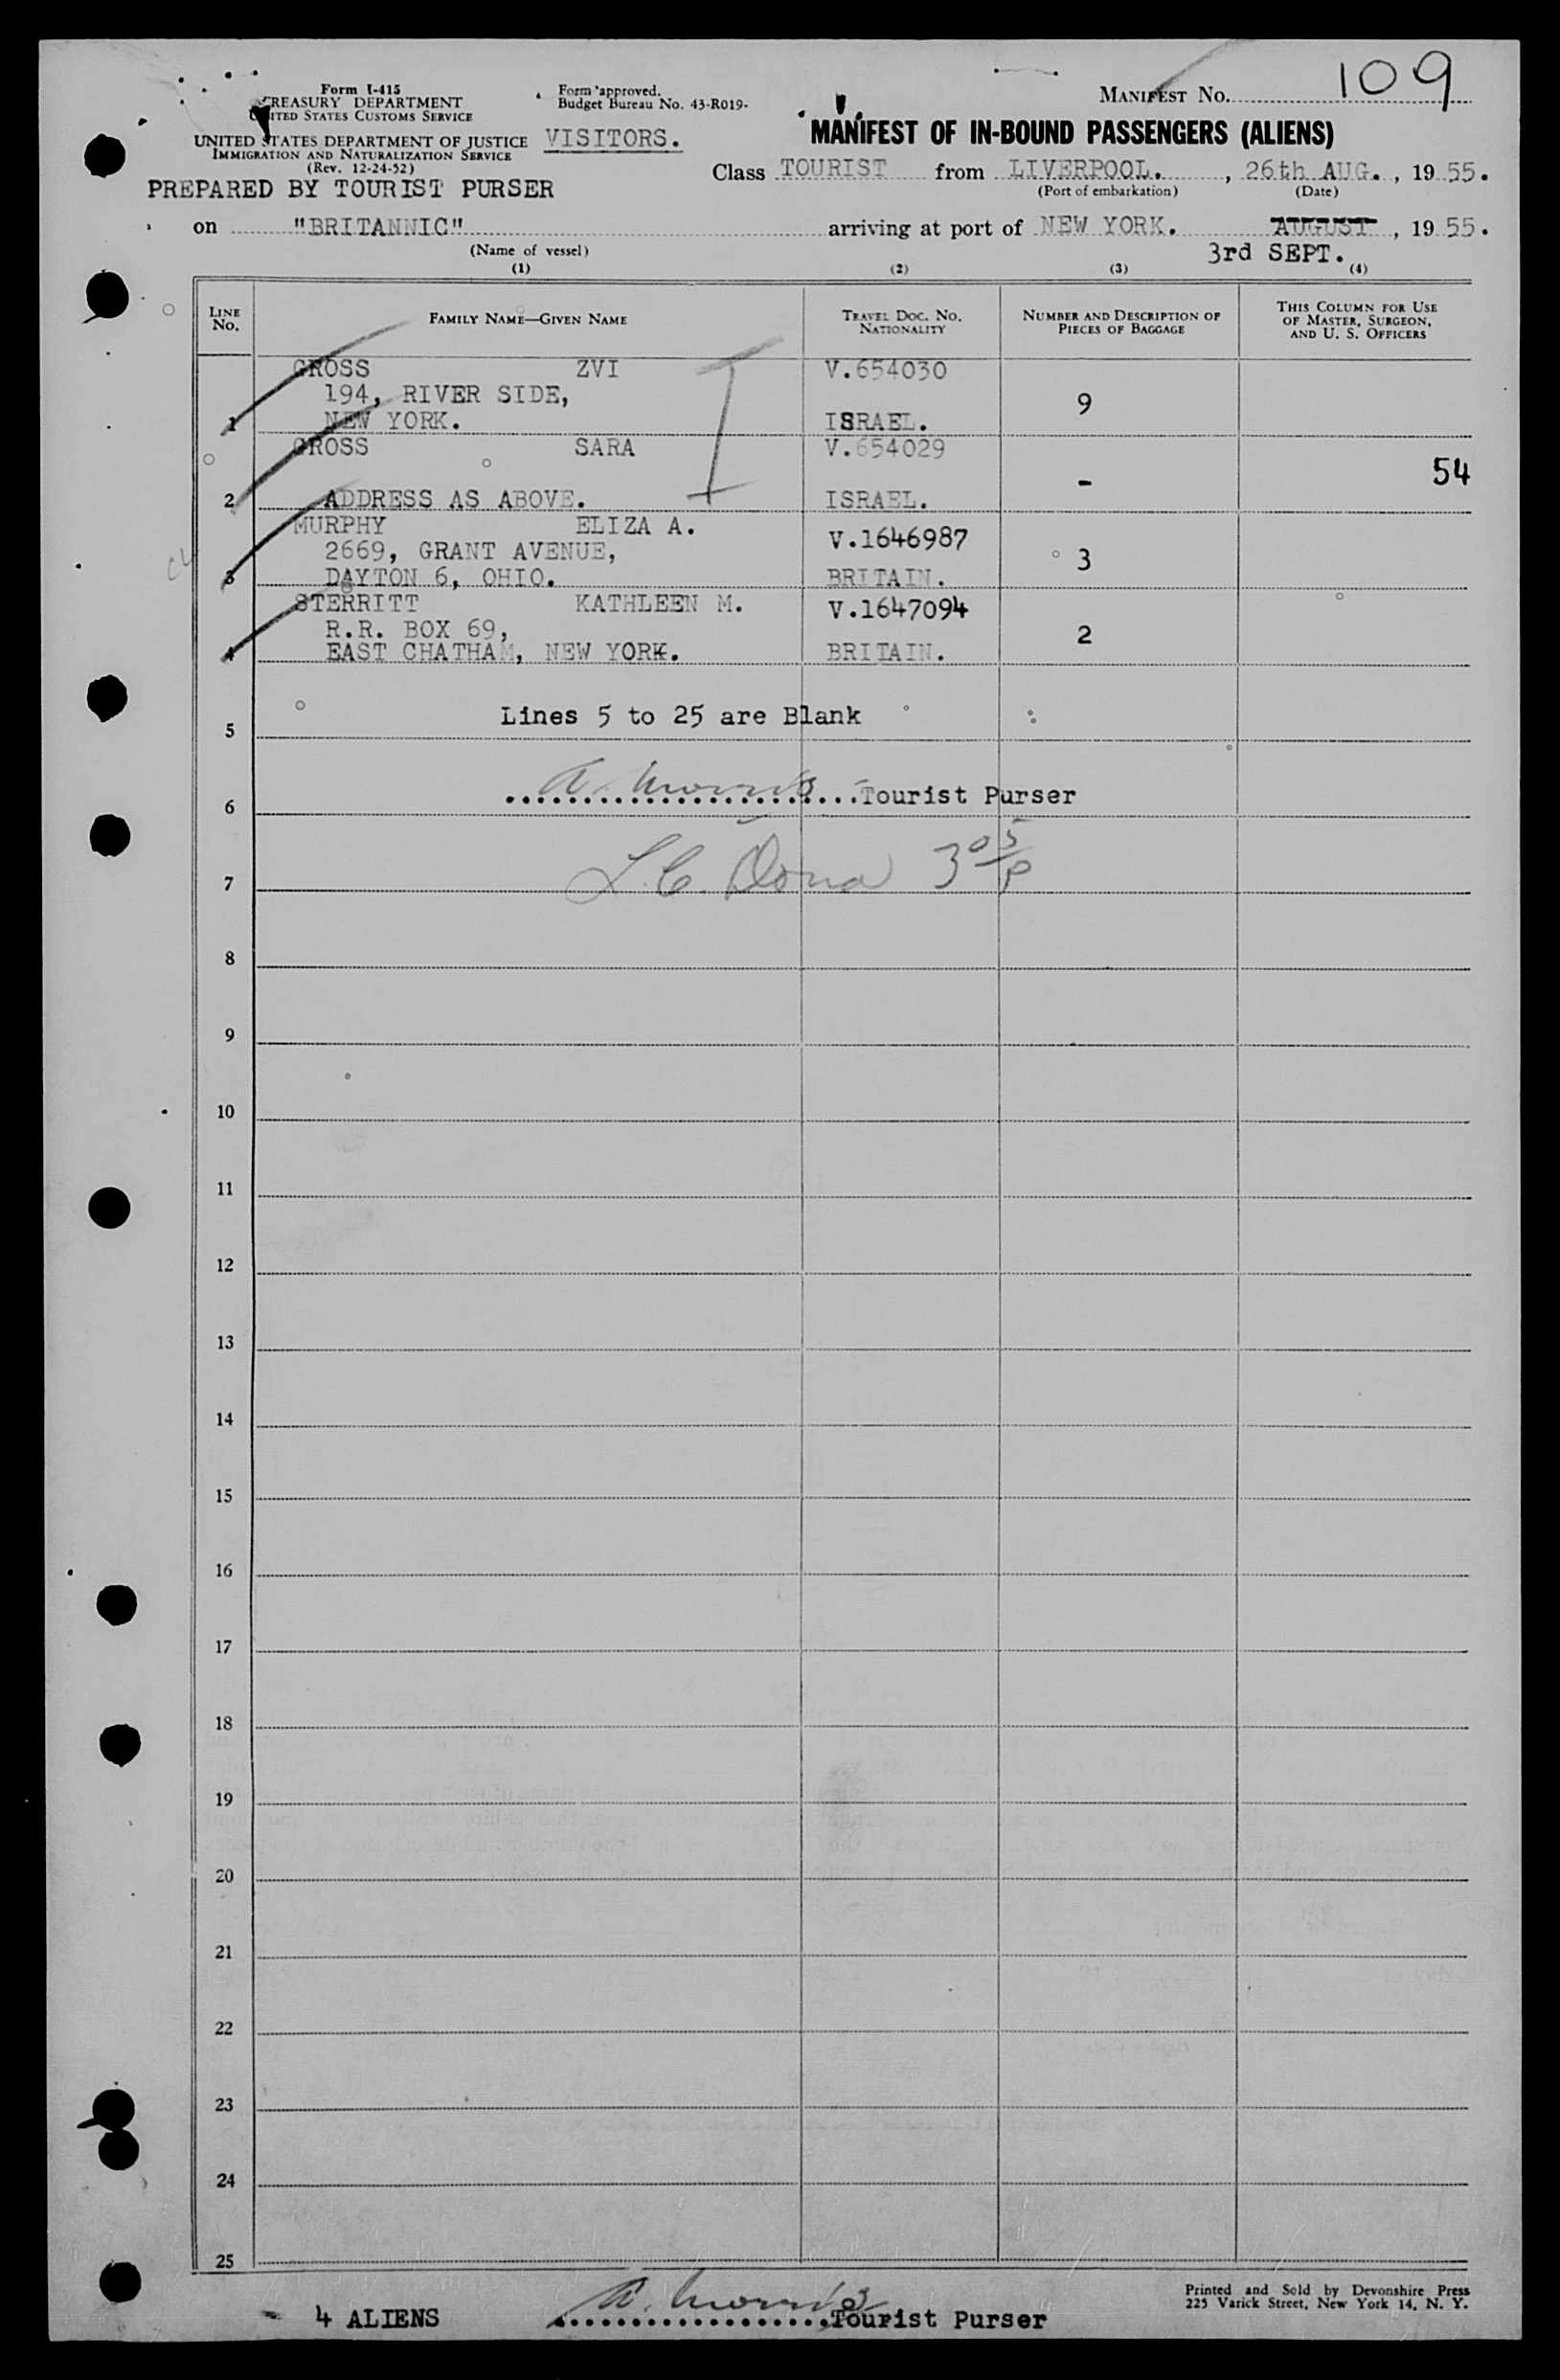 Form I-415
TREASURY DEPARTMENT
UNITED STATES CUSTOMS SERVICE
UNITED STATES DEPARTMENT OF JUSTICE
IMMIGRATION AND NATURALIZATION SERVICE
(Rev. 12-24-52)
PREPARED BY TOURIST PURSER
Form approved.
Budget Bureau No. 43-R019-
VISITORS.
MANIFEST No. 109
MANIFEST OF IN-BOUND PASSENGERS (ALIENS)
Class TOURIST from LIVERPOOL. , 26th AUG. , 19 55.
(Port of embarkation) (Date)
on "BRITANNIC" arriving at port of NEW YORK. AUGUST , 19 55.
(Name of vessel) 3rd SEPT.
(1) (2) (3) (4)
LINE No. FAMILY NAME—GIVEN NAME TRAVEL DOC. NO. NATIONALITY NUMBER AND DESCRIPTION OF PIECES OF BAGGAGE THIS COLUMN FOR USE OF MASTER, SURGEON, AND U. S. OFFICERS
GROSS ZVI V.654030
194, RIVER SIDE, 9
1 NEW YORK. ISRAEL.
GROSS SARA V.654029
- 54
2 ADDRESS AS ABOVE. ISRAEL.
MURPHY ELIZA A. V.1646987
2669, GRANT AVENUE, 3
3 DAYTON 6, OHIO. BRITAIN.
STERRITT KATHLEEN M. V.1647094
R.R. BOX 69, 2
4 EAST CHATHAM, NEW YORK. BRITAIN.
Lines 5 to 25 are Blank
5
A. Morris Tourist Purser
6
L.C. 305/P
7
8
9
10
11
12
13
14
15
16
17
18
19
20
21
22
23
24
25
4 ALIENS A. Morris Tourist Purser
Printed and Sold by Devonshire Press
225 Varick Street, New York 14, N. Y.